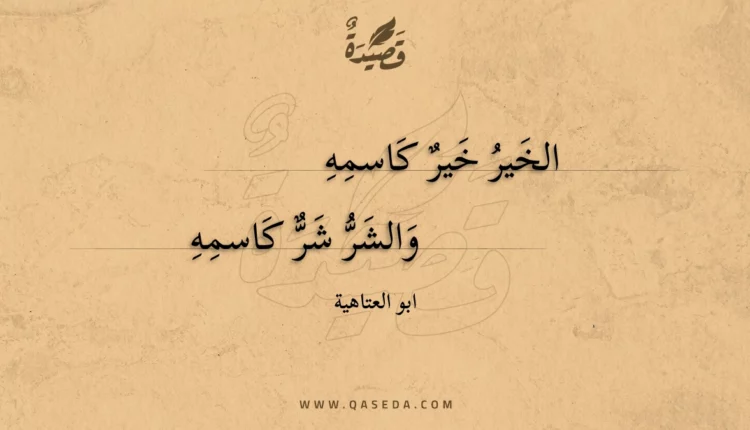 قَصِيْدَةٌ
الخَيرُ خَيرٌ كَاسمِهِ
وَالشَرُّ شَرٌّ كَاسمِهِ
ابو العتاهية
WWW.QASEDA.COM